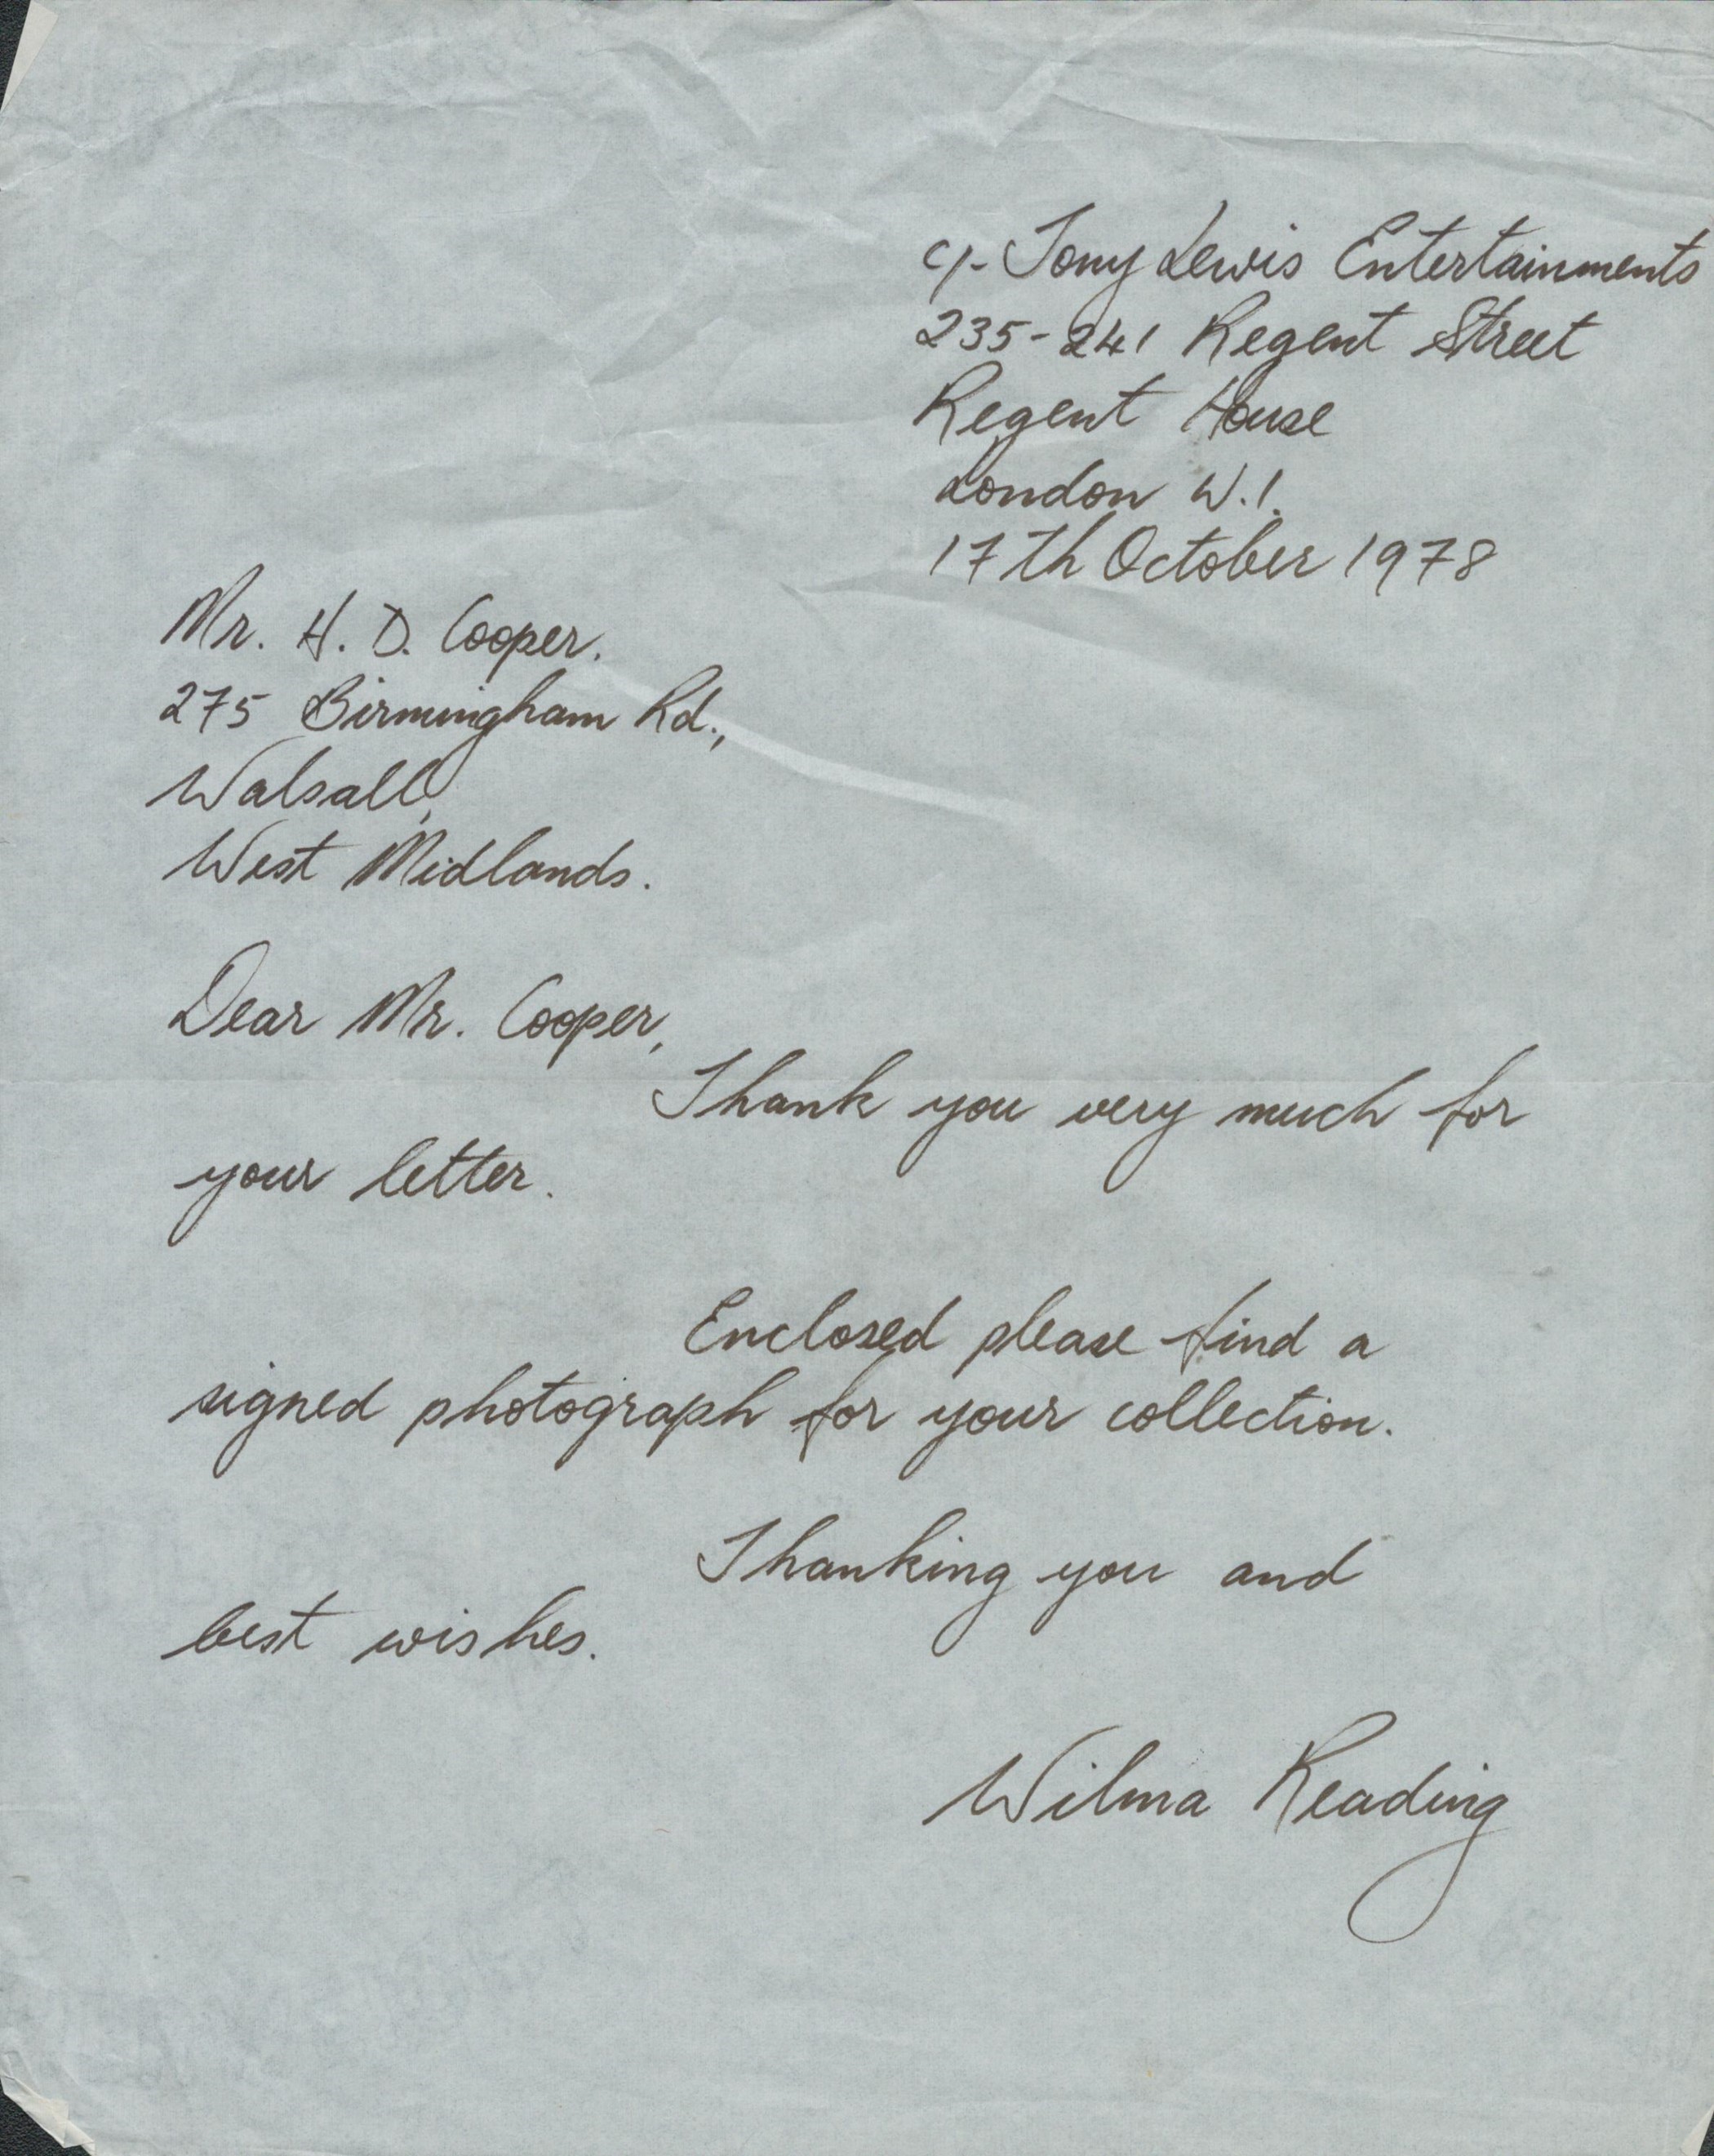 c/- Tony Lewis Entertainments
235-241 Regent Street
Regent House
London W.1.
17th October 1978
Mr. H. D. Cooper.
275 Birmingham Rd.,
Walsall,
West Midlands.
Dear Mr. Cooper,
Thank you very much for
your letter.
Enclosed please find a
signed photograph for your collection.
Thanking you and
best wishes.
Wilma Reading